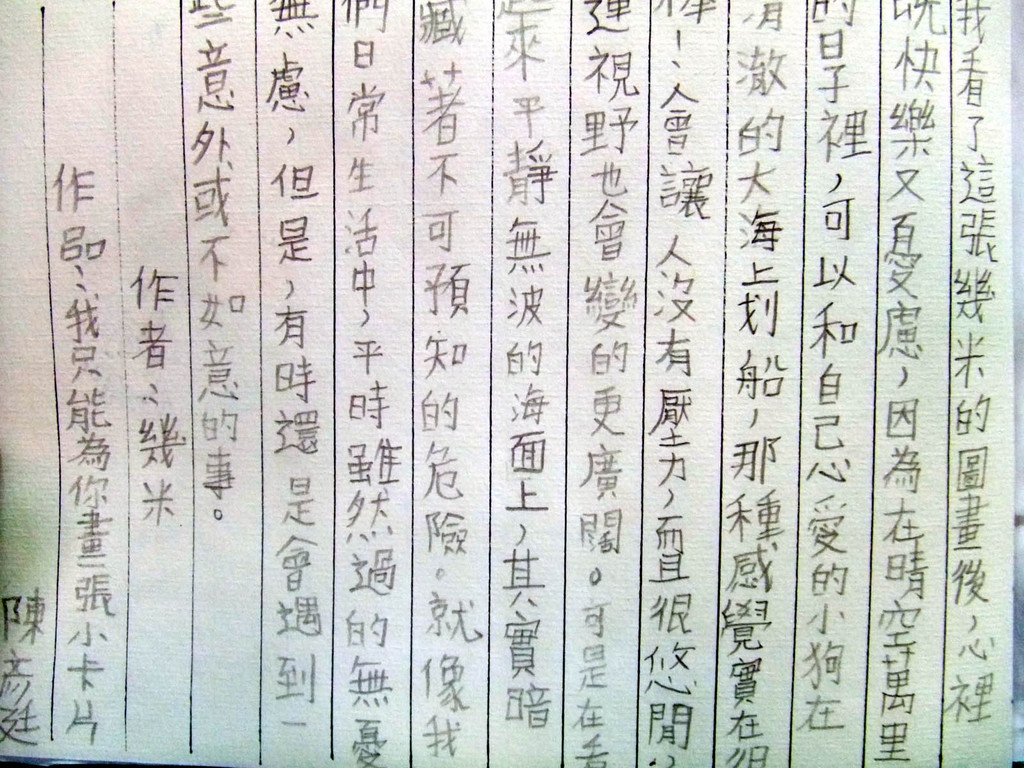 我看了這張幾米的圖畫後,心裡
既快樂又憂慮,因為在晴空萬里
的日子裡,可以和自己心愛的小狗在
清澈的大海上划船,那種感覺實在很
棒!人會讓人沒有壓力,而且很悠閒,
連視野也會變的更廣闊。可是在看
起來平靜無波的海面上,其實暗
藏著不可預知的危險。就像我
們日常生活中,平時雖然過的無憂
無慮,但是,有時還是會遇到一
些意外或不如意的事。
作者:幾米
作品:我只能為你畫一張小卡片
陳彥廷